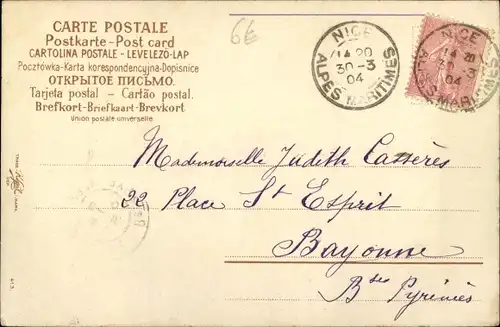 CARTE POSTALE
Postkarte - Post card
CARTOLINA POSTALE - LEVELEZŐ-LAP
Pocztówka - Karta korespondencyjna - Dopisnice
ОТКРЫТОЕ ПИСЬМО.
Tarjeta postal - Cartão postal.
Brefkort - Briefkaart - Brevkort
Union postale universelle.
6€
NICE
14 20
30-3
04
ALPES MARITIMES
NICE
14 20
30-3
04
ALPES MARITIMES
Mademoiselle Judith Cassères
22 Place St Esprit
Bayonne
Bses Pyrénées